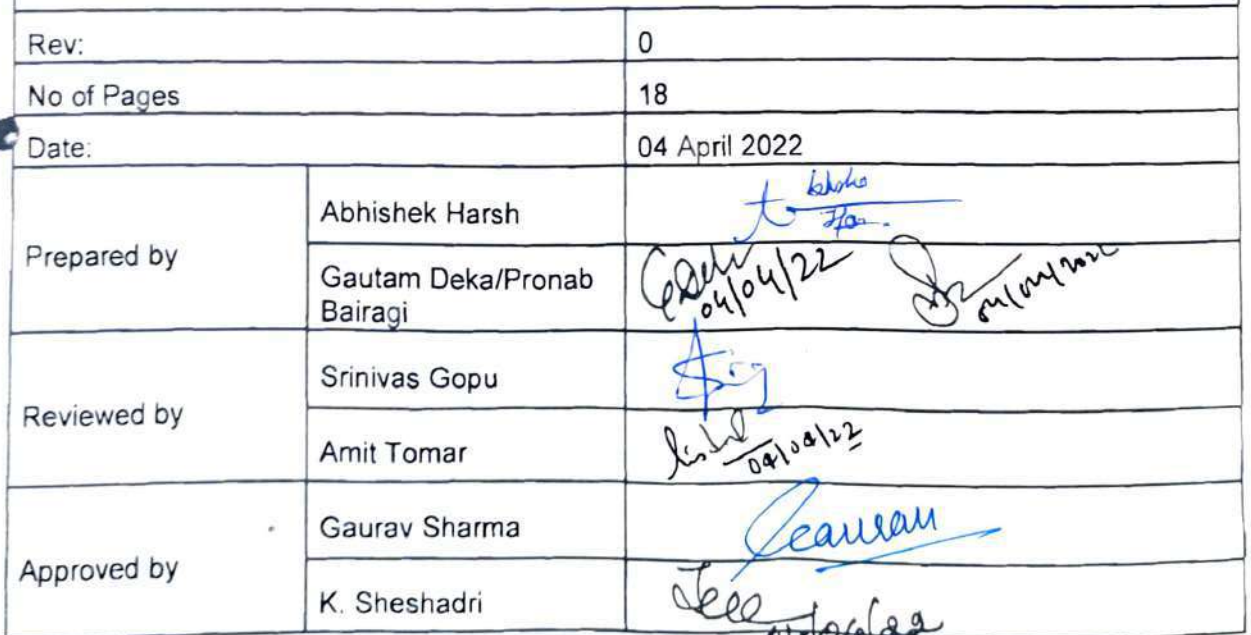 Rev:
0
No of Pages
18
Date:
04 April 2022
Prepared by
Abhishek Harsh
Gautam Deka/Pronab
Bairagi
04/04/22
04/04/2022
Reviewed by
Srinivas Gopu
Amit Tomar
04/04/22
Approved by
Gaurav Sharma
Gaurav
K. Sheshadri